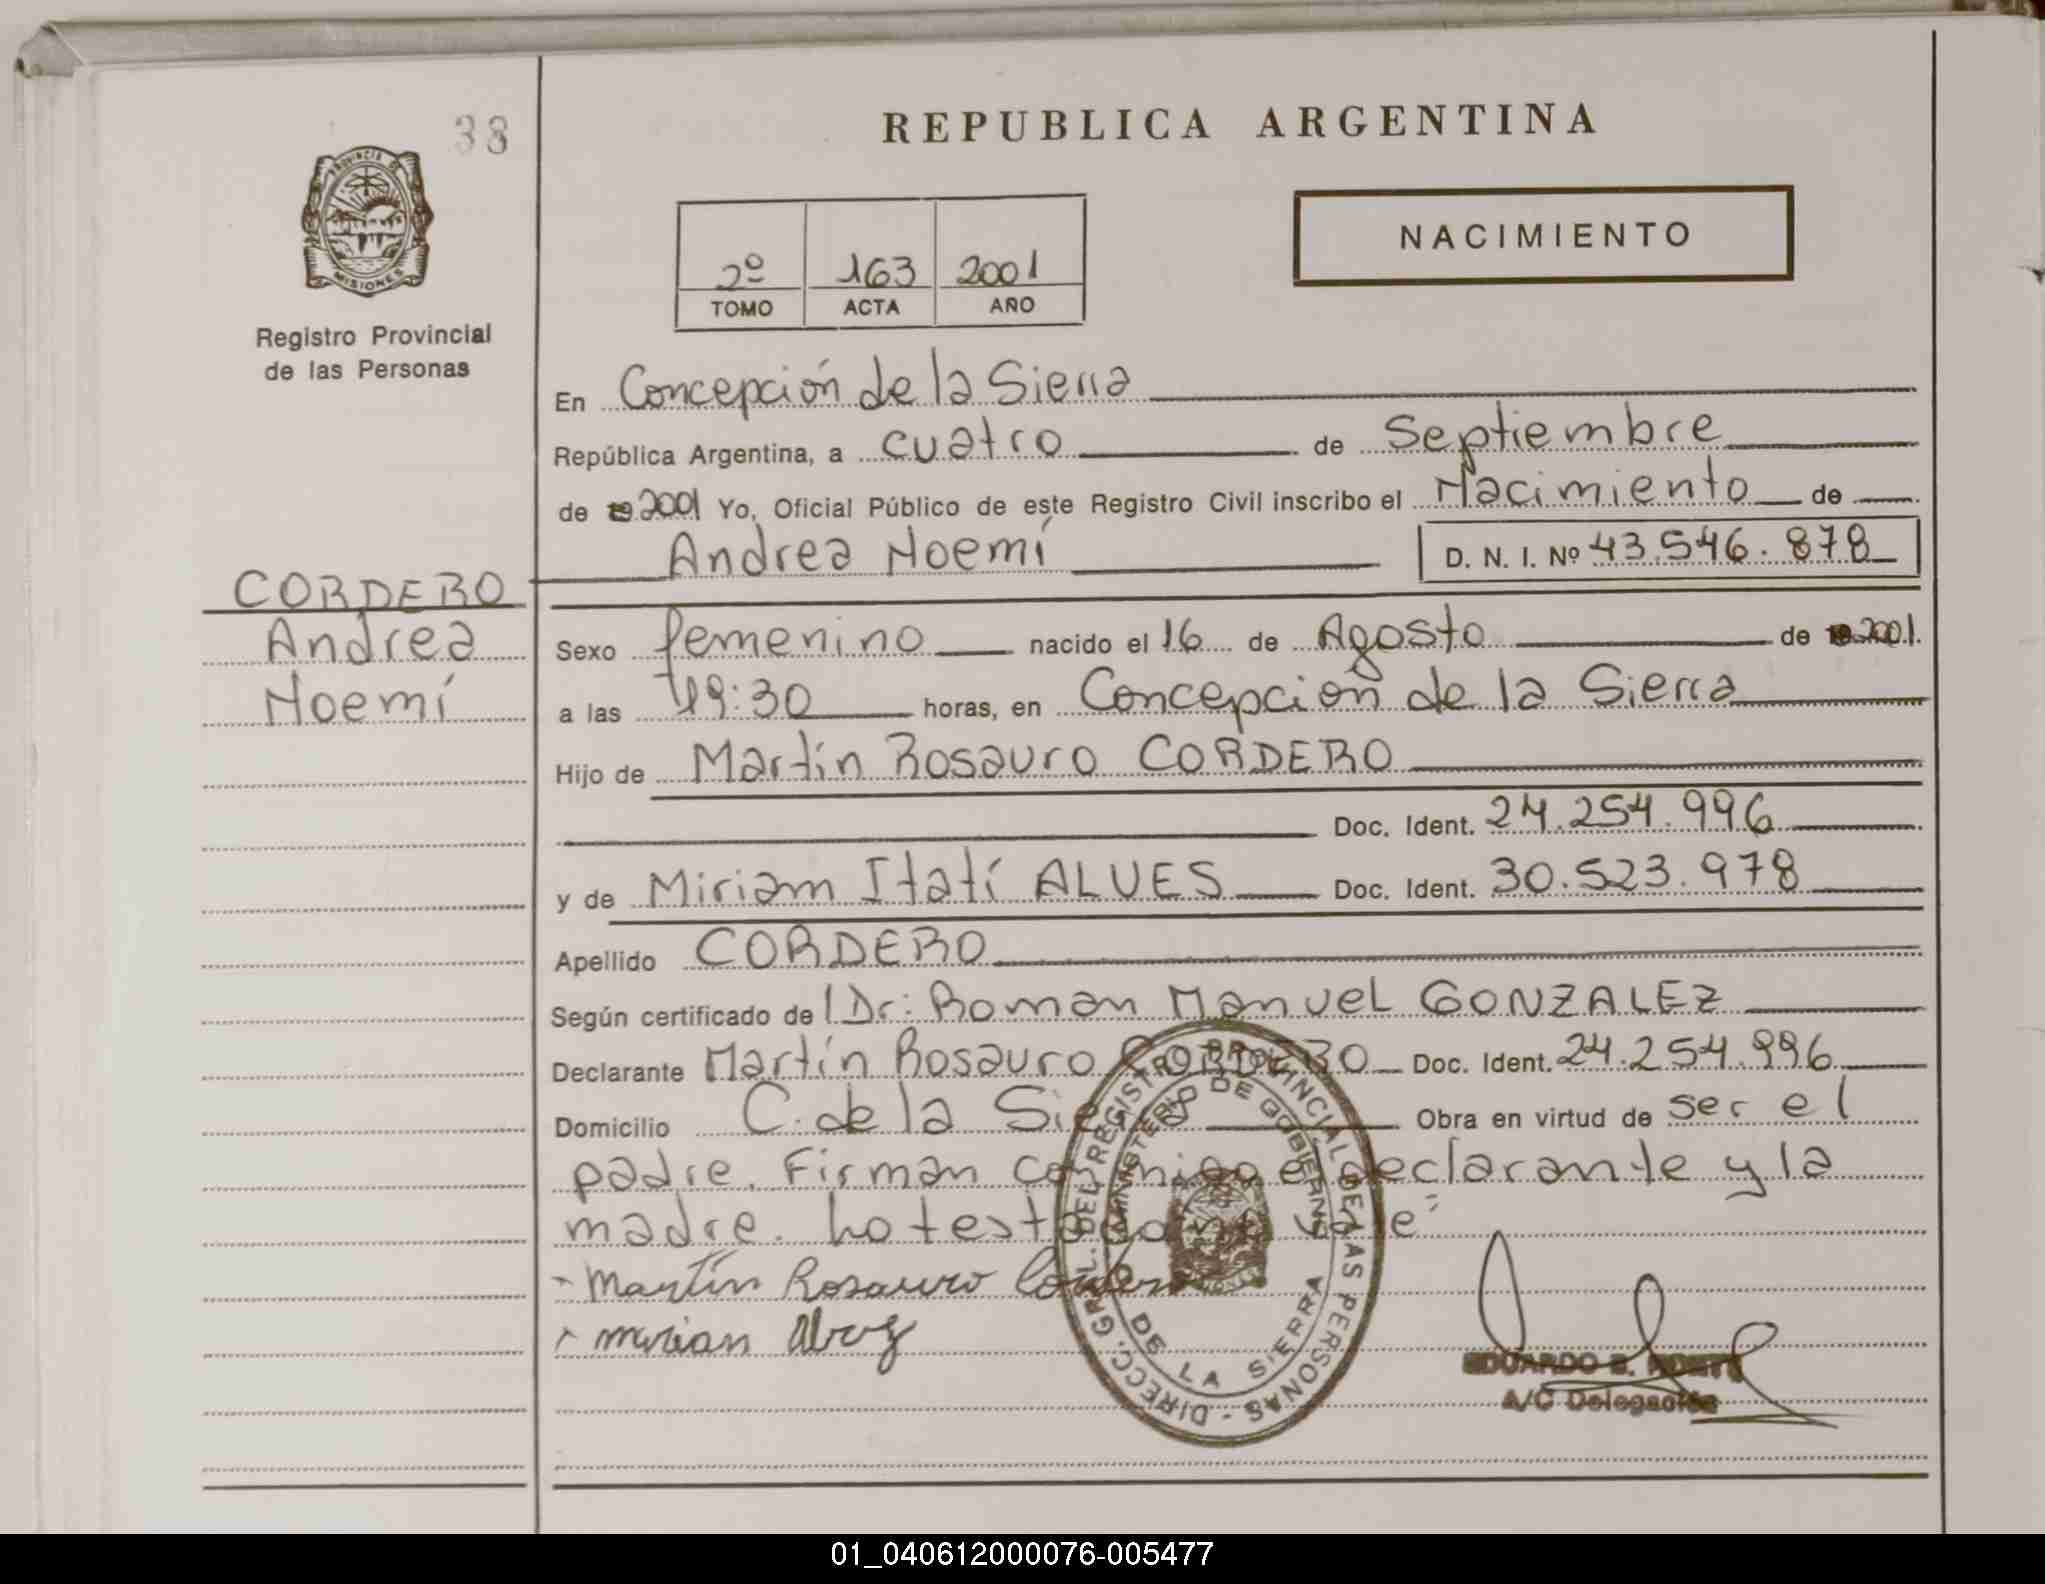 38
REPUBLICA ARGENTINA
PROVINCIA DE
MISIONES
NACIMIENTO
2º 163 2001
TOMO ACTA AÑO
Registro Provincial
de las Personas
En Concepción de la Sierra
República Argentina, a cuatro de Septiembre
de 2001 Yo, Oficial Público de este Registro Civil inscribo el Nacimiento de
Andrea Noemí D. N. I. Nº 43.546.878
CORDERO
Andrea
Noemí
Sexo femenino nacido el 16 de Agosto de 2001.
a las 19:30 horas, en Concepción de la Sierra
Hijo de Martín Rosauro CORDERO
Doc. Ident. 24.254.996
y de Miriam Itatí ALVES Doc. Ident. 30.523.978
Apellido CORDERO
Según certificado del Dr: Roman Manuel GONZALEZ
Declarante Martín Rosauro CORDERO Doc. Ident. 24.254.996
Domicilio C. de la Sierra Obra en virtud de ser el
padre. Firman conmigo el declarante y la
madre. Lo testado no vale"
- Martín Rosauro Cordero
- mirian
DIRECC. GRAL. DEL REGISTRO PROVINCIAL DE LAS PERSONAS -
MINISTERIO DE GOBIERNO
DE LA SIERRA
EDUARDO
A/C Delegación
01_040612000076-005477